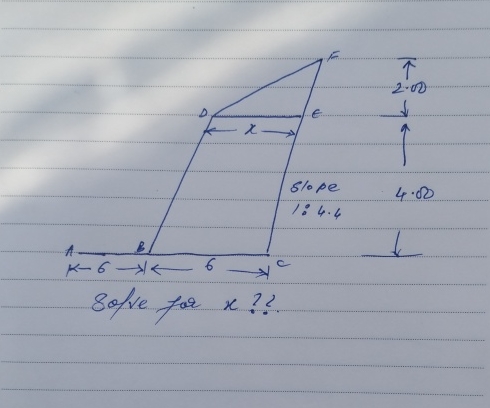 F
2.00
D
E
x
slope
1:4.4
4.00
A
B
C
6
6
Solve for x ??